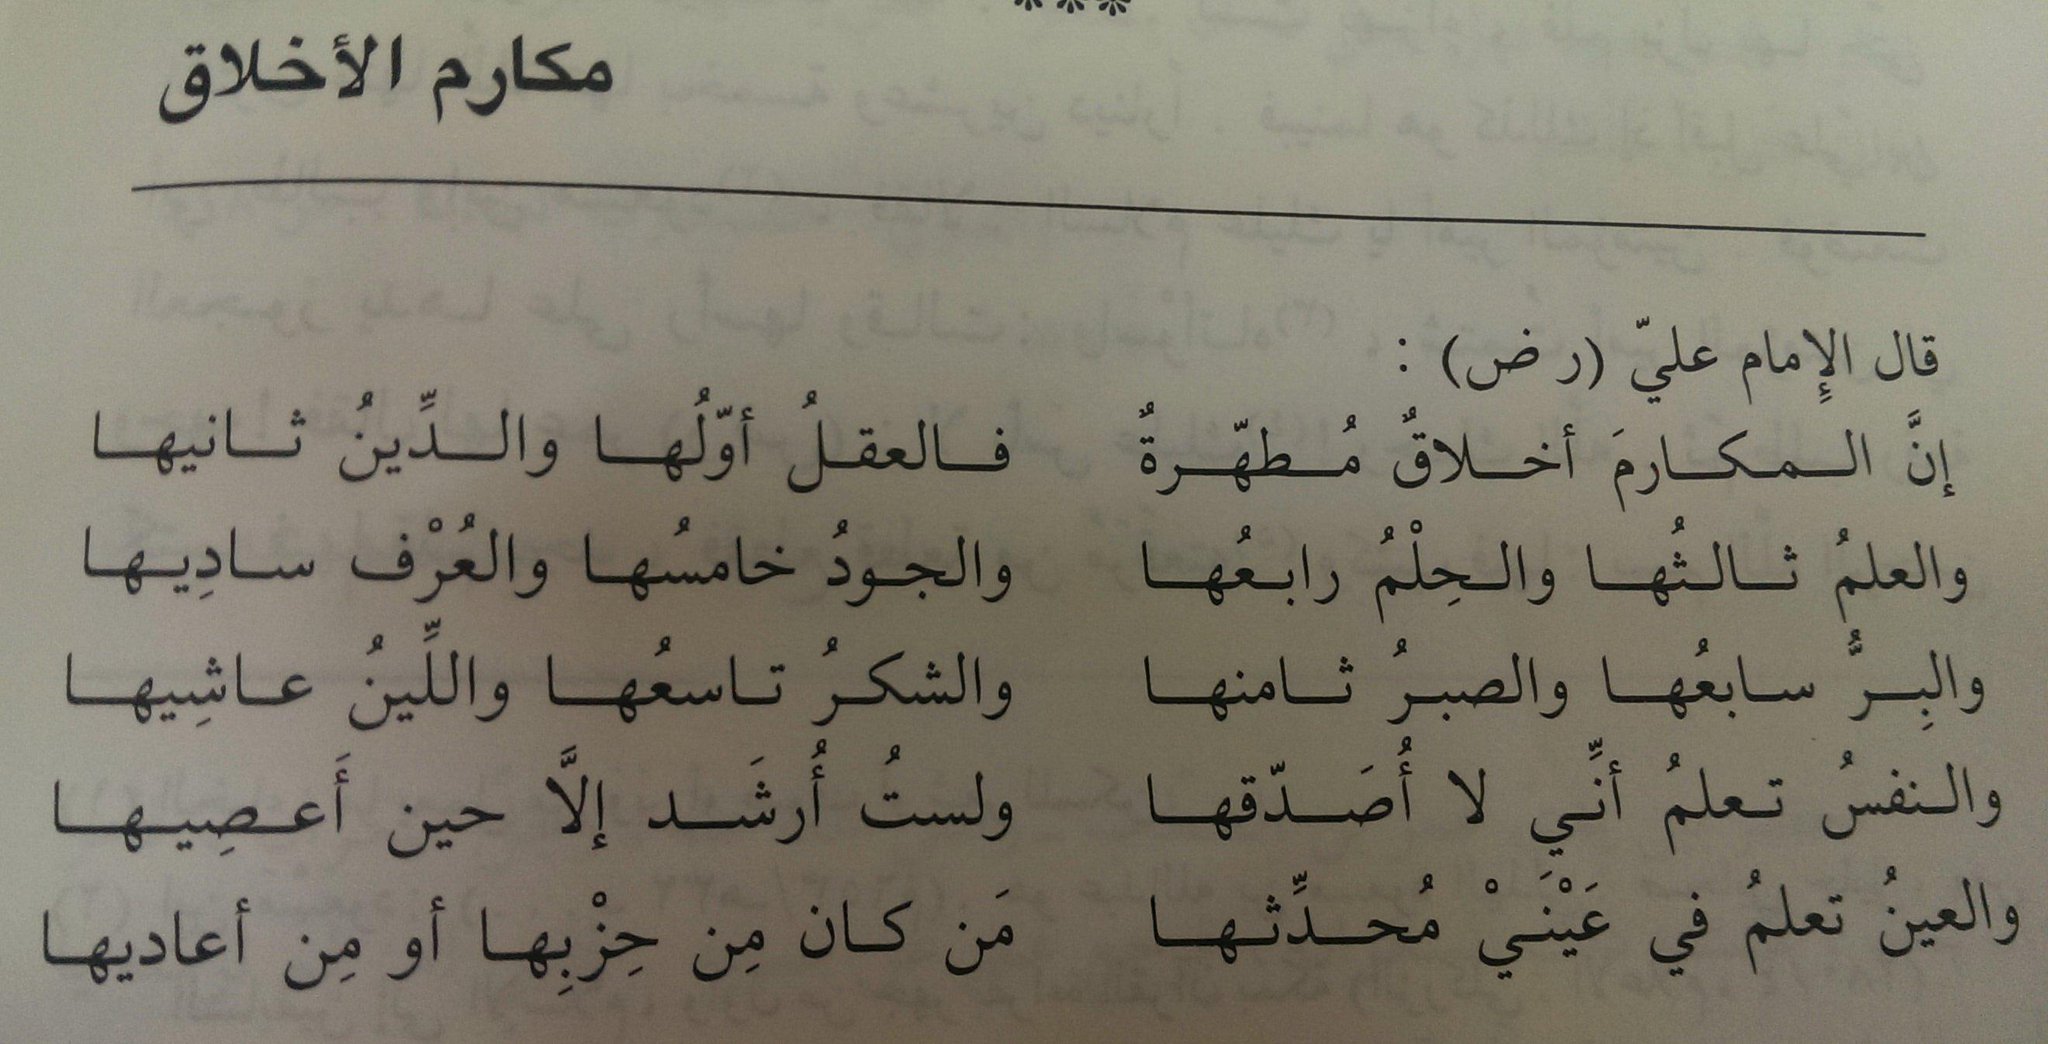 مكارم الأخلاق
قال الإِمام عليّ (رض) :
إنَّ المكارمَ أخلاقٌ مُطهّرةٌ فالعقلُ أوّلُها والدِّينُ ثانيها
والعلمُ ثالثُها والحِلْمُ رابعُها والجودُ خامسُها والعُرْف سادِيها
والبِرُّ سابعُها والصبرُ ثامنها والشكرُ تاسعُها واللِّينُ عاشِيها
والنفسُ تعلمُ أنِّي لا أُصَدّقها ولستُ أُرشَد إلَّا حين أَعصِيها
والعينُ تعلمُ في عَيْنَيْ مُحدِّثها مَن كان مِن حِزْبِها أو مِن أعاديها